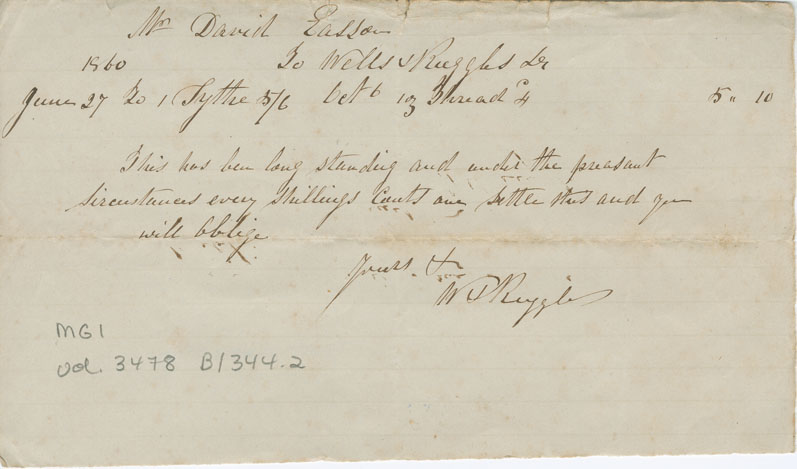 Mr David Easson
1860 To Wells & Ruggles Dr
June 27 To 1 Sythe 5/6 Oct 6 1 oz Thread 4 5 " 10
This has ben long standing and under the preasant
sircustances every shillings Counts one settle this and you
will oblige
Yours &c
W & Ruggles
MG1
vol. 3478 B/344.2